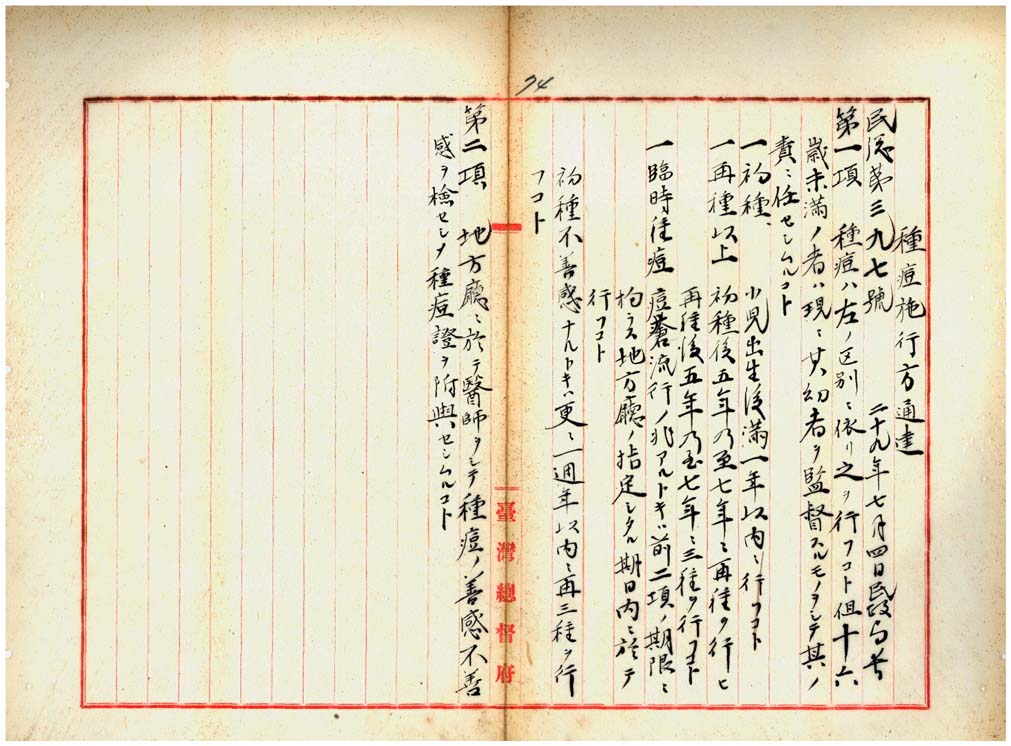 74
種痘施行方通達
民總第三九七號 二十九年七月四日民政局長
第一項 種痘ハ左ノ区別ニ依リ之ヲ行フコト但十六
歳未満ノ者ハ現ニ其幼者ヲ監督スルモノヲシテ其ノ
責ニ任セシムルコト
一初種、 小児出生後満一年以内ニ行フコト
一再種以上 初種後五年乃至七年ニ再種ヲ行ヒ
再種後五年乃至七年ニ三種ヲ行フコト
一臨時種痘 痘瘡流行ノ兆アルトキハ前二項ノ期限ニ
拘ラス地方廳ノ指定シタル期日内ニ於テ
行フコト
初種不善感ナルトキハ更ニ一週年以内ニ再三種ヲ行
フコト
第二項 地方廳ニ於テ醫師ヲシテ種痘ノ善感不善
感ヲ檢セシメ種痘證ヲ附與セシムルコト
臺灣總督府